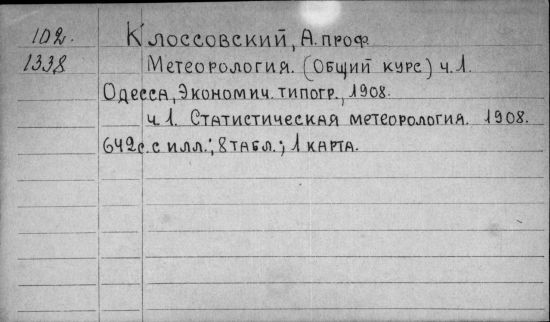 102. Клоссовский, А. проф
1338 Метеорология. (Общий курс) ч.1.
Одесса, Экономич. типогр., 1908.
ч.1. Статистическая метеорология. 1908.
642с. с илл.; 8 табл.; 1 карта.